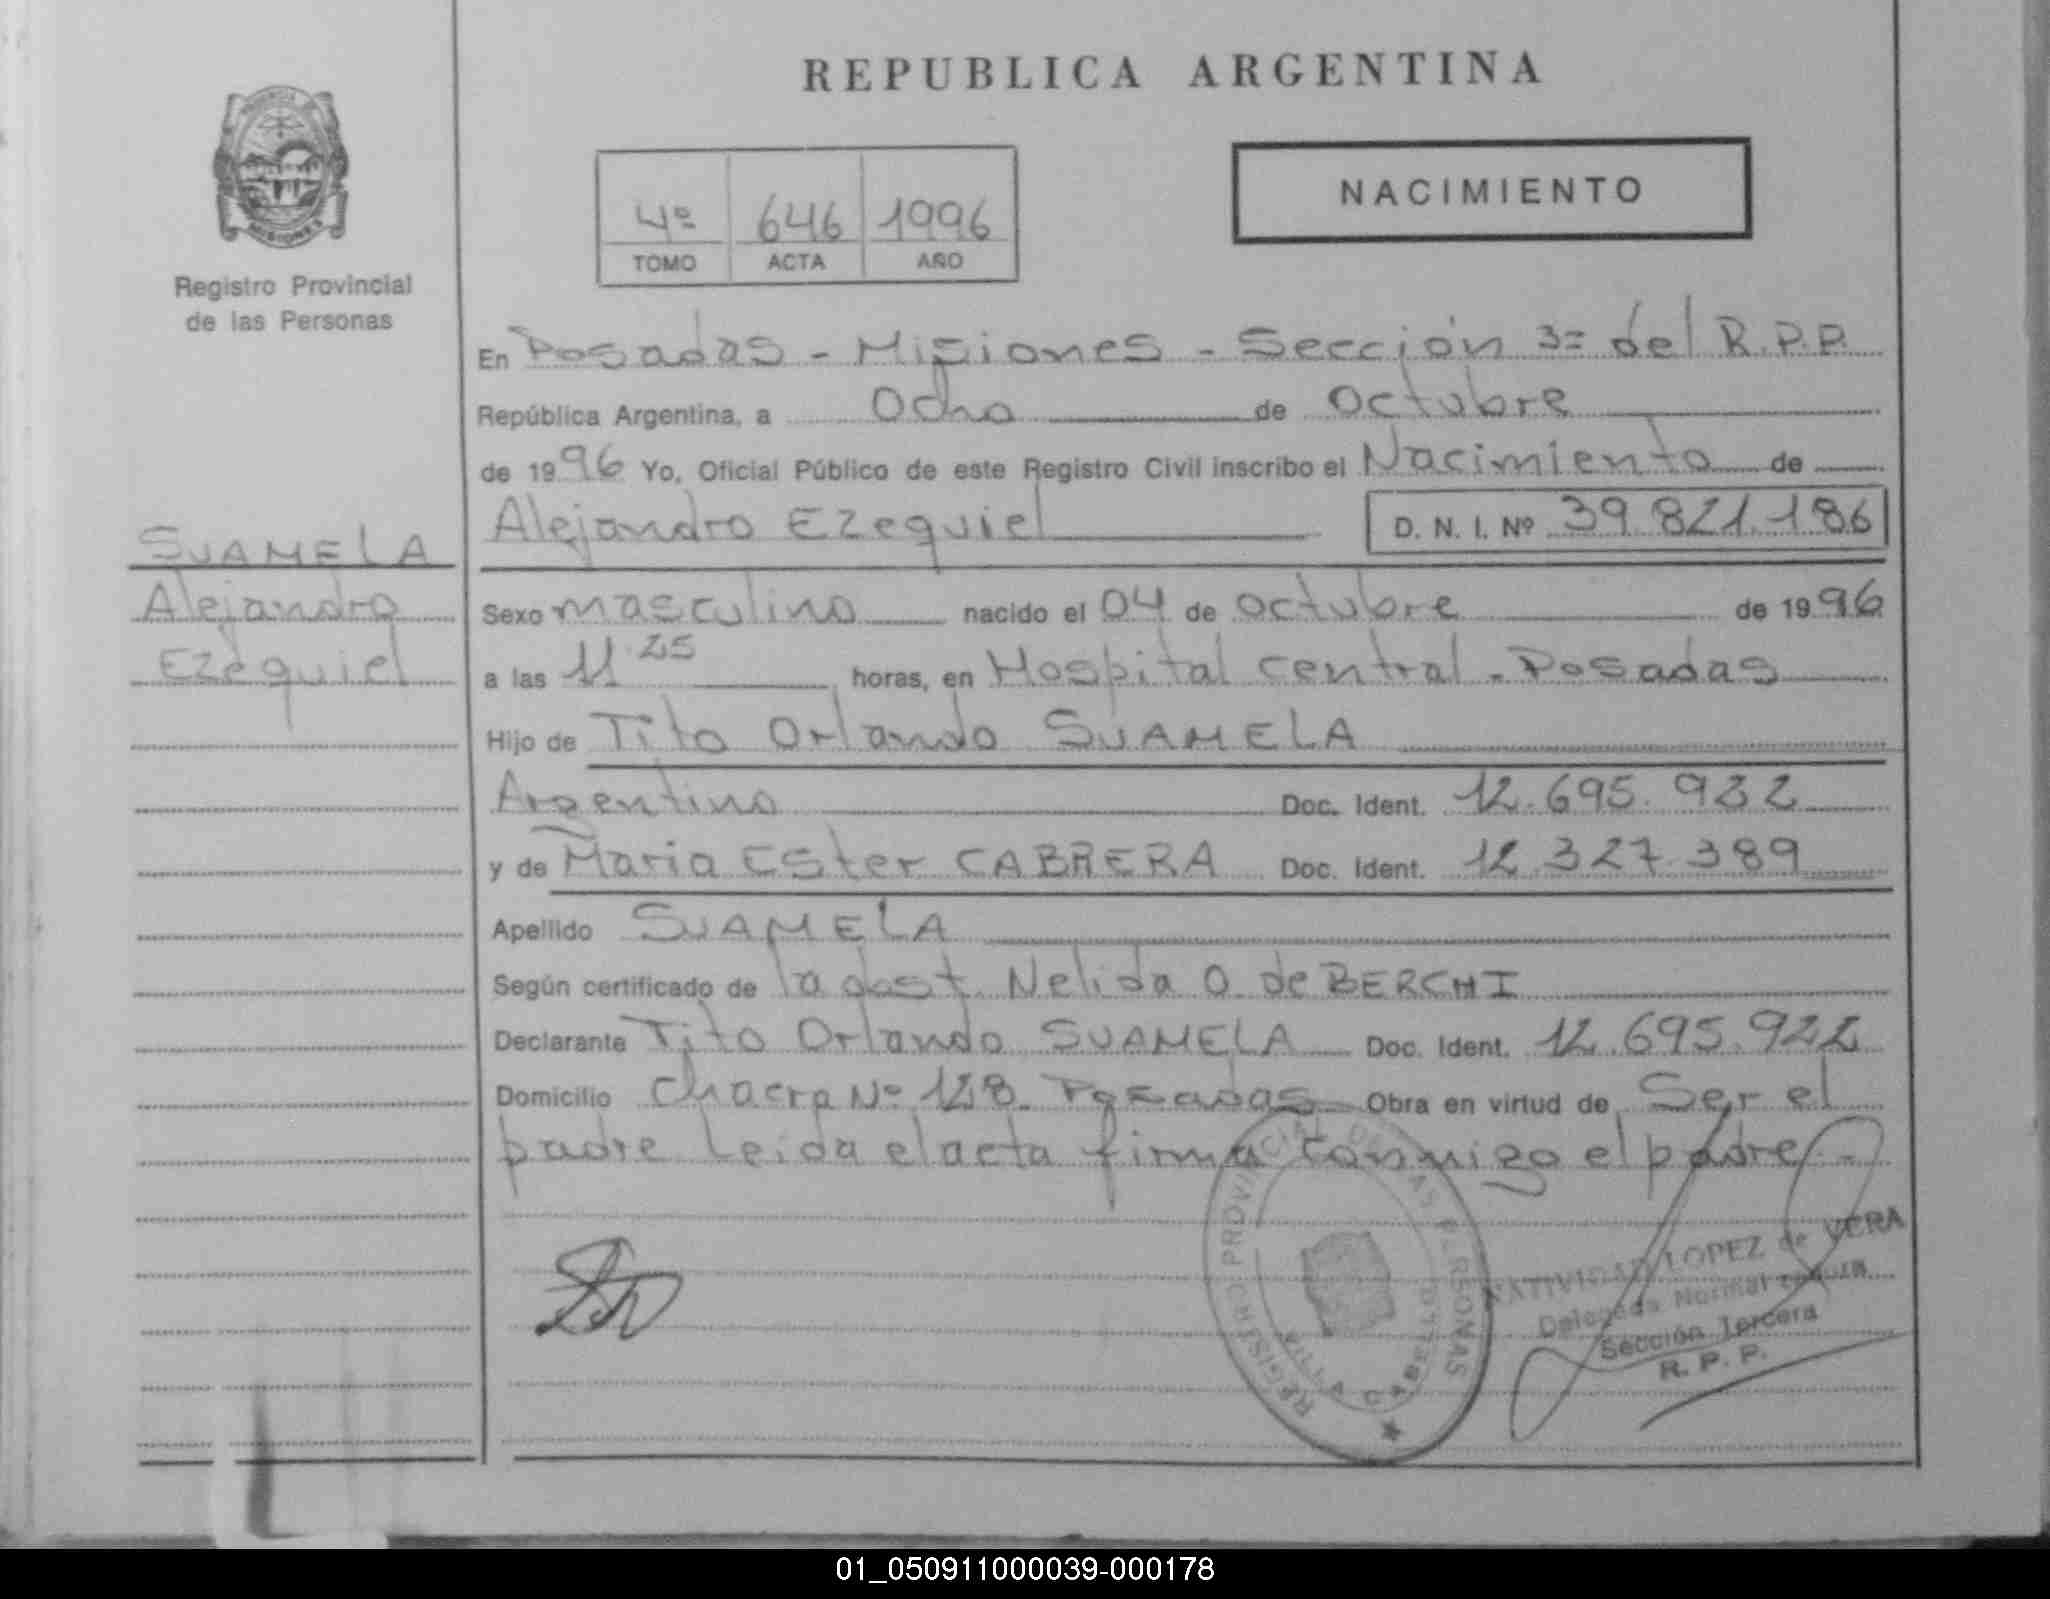 REPUBLICA ARGENTINA
PROVINCIA DE
MISIONES
Registro Provincial
de las Personas
NACIMIENTO
4º 646 1996
TOMO ACTA AÑO
En Posadas - Misiones - Sección 3ª del R.P.P.
República Argentina, a Ocho de Octubre
de 1996 Yo, Oficial Público de este Registro Civil inscribo el Nacimiento de
Alejandro Ezequiel D. N. I. Nº 39.821.186
SUAMELA
Alejandro
Ezequiel
Sexo masculino nacido el 04 de octubre de 1996
a las 11 25 horas, en Hospital central - Posadas
Hijo de Tito Orlando SUAMELA
Argentino Doc. Ident. 12.695.922
y de Maria Ester CABRERA Doc. Ident. 12.327.389
Apellido SUAMELA
Según certificado de la obst. Nelida O. de BERCHI
Declarante Tito Orlando SUAMELA Doc. Ident. 12.695.922
Domicilio Chacra Nº 128 Posadas Obra en virtud de Ser el
padre Leida el acta firma conmigo el padre.-
REGISTRO PROVINCIAL DE LAS PERSONAS
VILLA CABELLO
NATIVIDAD LOPEZ de VERA
Delegada Normalizadora
Sección Tercera
R. P. P.
01_050911000039-000178